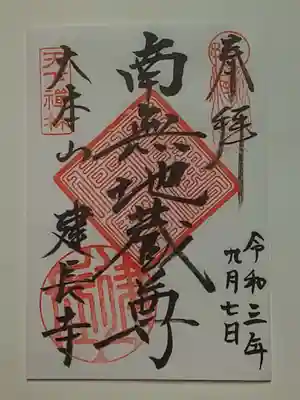 奉拝
令和三年
九月七日
南無地蔵尊
天下禅林
大本山
建長寺